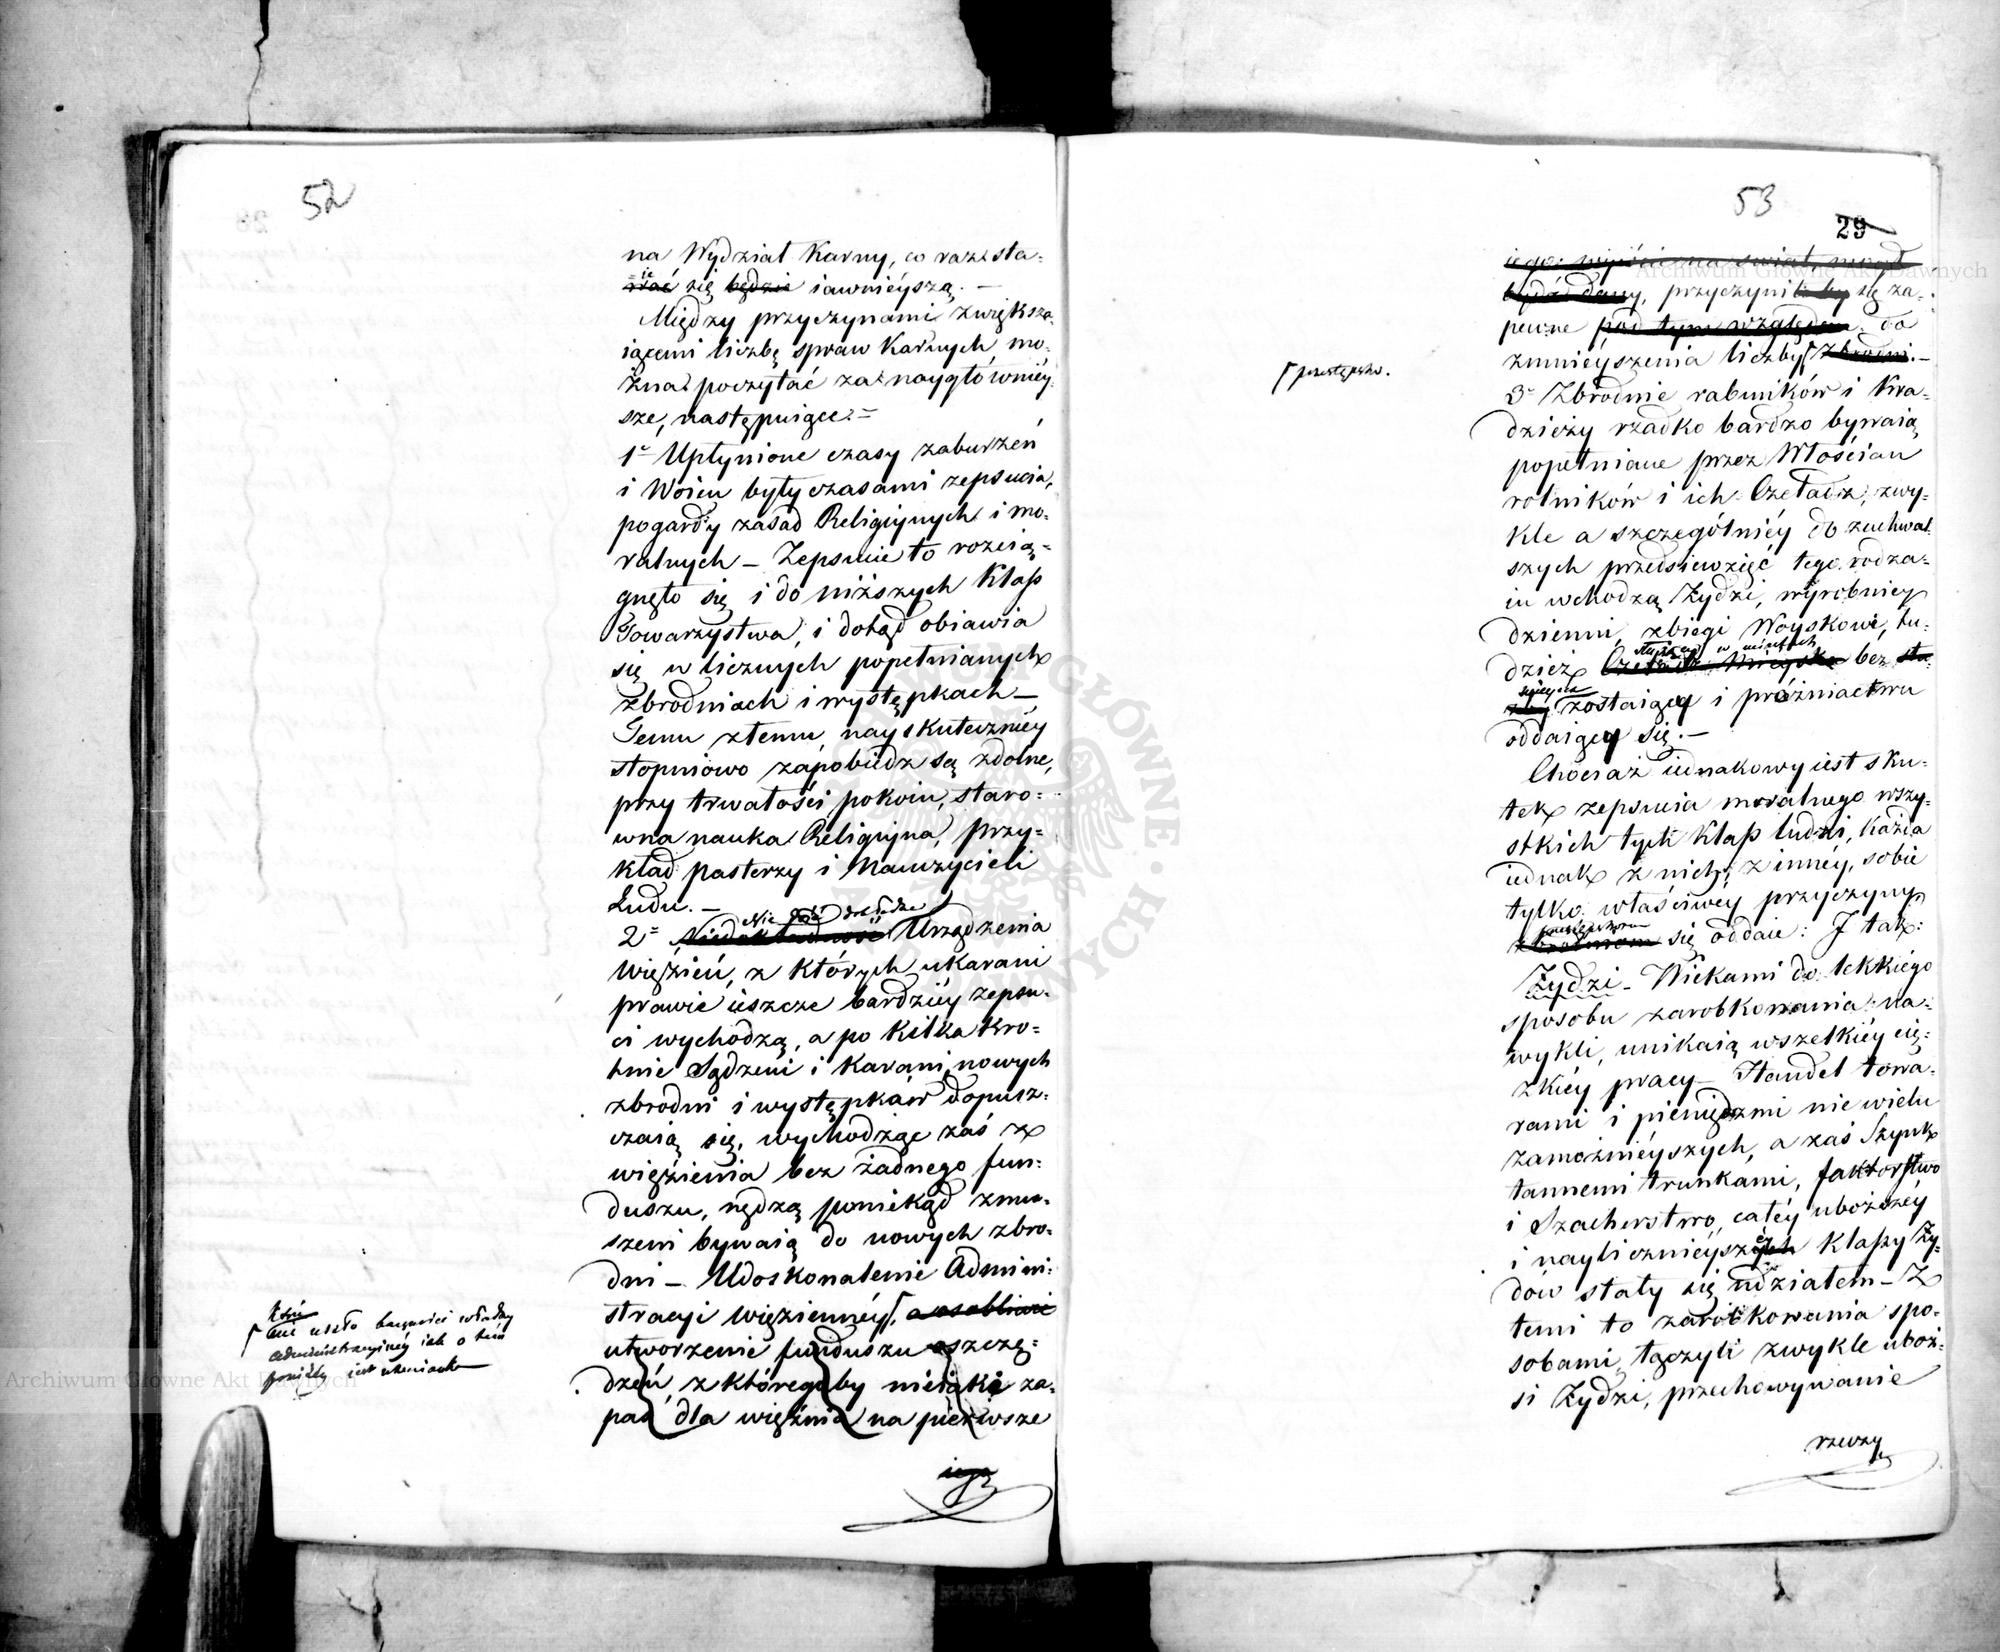 52
na Wydział Karny, co raz sta=
=ie
wać się będzie iawnieyszą. —
Między przyczynami zwiększa=
iącemi liczbę spraw Karnych, mo=
żna poczytać za naygłówniey=
sze, następuiące: =
1e Upłynione czasy zaburzeń
i Woien były czasami zepsucia,
pogardy zasad Religiynych i mo=
ralnych — Zepsucie to rozcią=
gnęło się i do niższych Klass
Towarzystwa, i dotąd obiawia
się w licznych popełnianych
zbrodniach i występkach —
Temu złemu, nayskuteczniey
stopniowo zapobiedz są zdolne,
przy trwałości pokoiu, staro=
wna nauka Religiyna, przy=
kład pasterzy i Nauczycieli
Ludu. —
Nie dość dokładne
2= Niedokładność Urządzenia
Więzień, z których ukarani
prawie ieszcze bardziey zepsu=
ci wychodzą, a po kilka kro=
tnie Sądzeni i Karani, nowych
zbrodni i występków dopusz=
czaią się, wychodząc zaś z
więzienia bez żadnego fun=
duszu, nędzą poniekąd zmu=
szeni bywaią do nowych zbro=
dni — Udoskonalenie Admini=
stracyi więzienney, a osobliwie
utworzenie funduszu oszczę=
dzeń, z któregoby nieiaki za=
pas dla więźnia na pierwsze
iego
które
nie uszło baczności władzy
administracyiney iak o tem
poniżey iest wzmianka
53
29
iego wyiście na świat, mógł
bydź dany, przyczyniłby się za=
pewne pod tym względem do
zmnieyszenia liczby zbrodni. —
przestępstw.
3e Zbrodnie rabunków i Kra=
dzieży rzadko bardzo bywaią
popełniane przez Włościan
rolników i ich Czeladź, zwy=
kle a szczególniey do zuchwal=
szych przedsięwzięć tego rodza=
iu wchodzą Żydzi, wyrobnicy
dzienni, zbiegi Woyskowi, tu=
służący w miastach
dzież Czeladź Mieyska bez sta=
zostaiący i próżniactwu
oddaiący się. —
Chociaż iednakowy iest sku=
tek zepsucia moralnego wszy=
stkich tych Klass ludzi, każda
iednak z nich, z inney, sobie
tylko właściwey przyczyny
zbrodniom się oddaie: I tak:
Żydzi — Wiekami do lekkiego
sposobu zarobkowania na=
wykli, unikaią wszelkiey cię=
żkiey pracy — Handel towa=
rami i pieniędzmi nie wielu
zamożnieyszych, a zaś Szynk
tannemi trunkami, faktorstwo
i Szacherstwo, całey uboższey
i naylicznieyszey klassy Ży=
dów stały się udziałem — Z
temi to zarobkowania spo=
sobami, łączyli zwykle uboż=
si Żydzi, przechowywanie
rzeczy